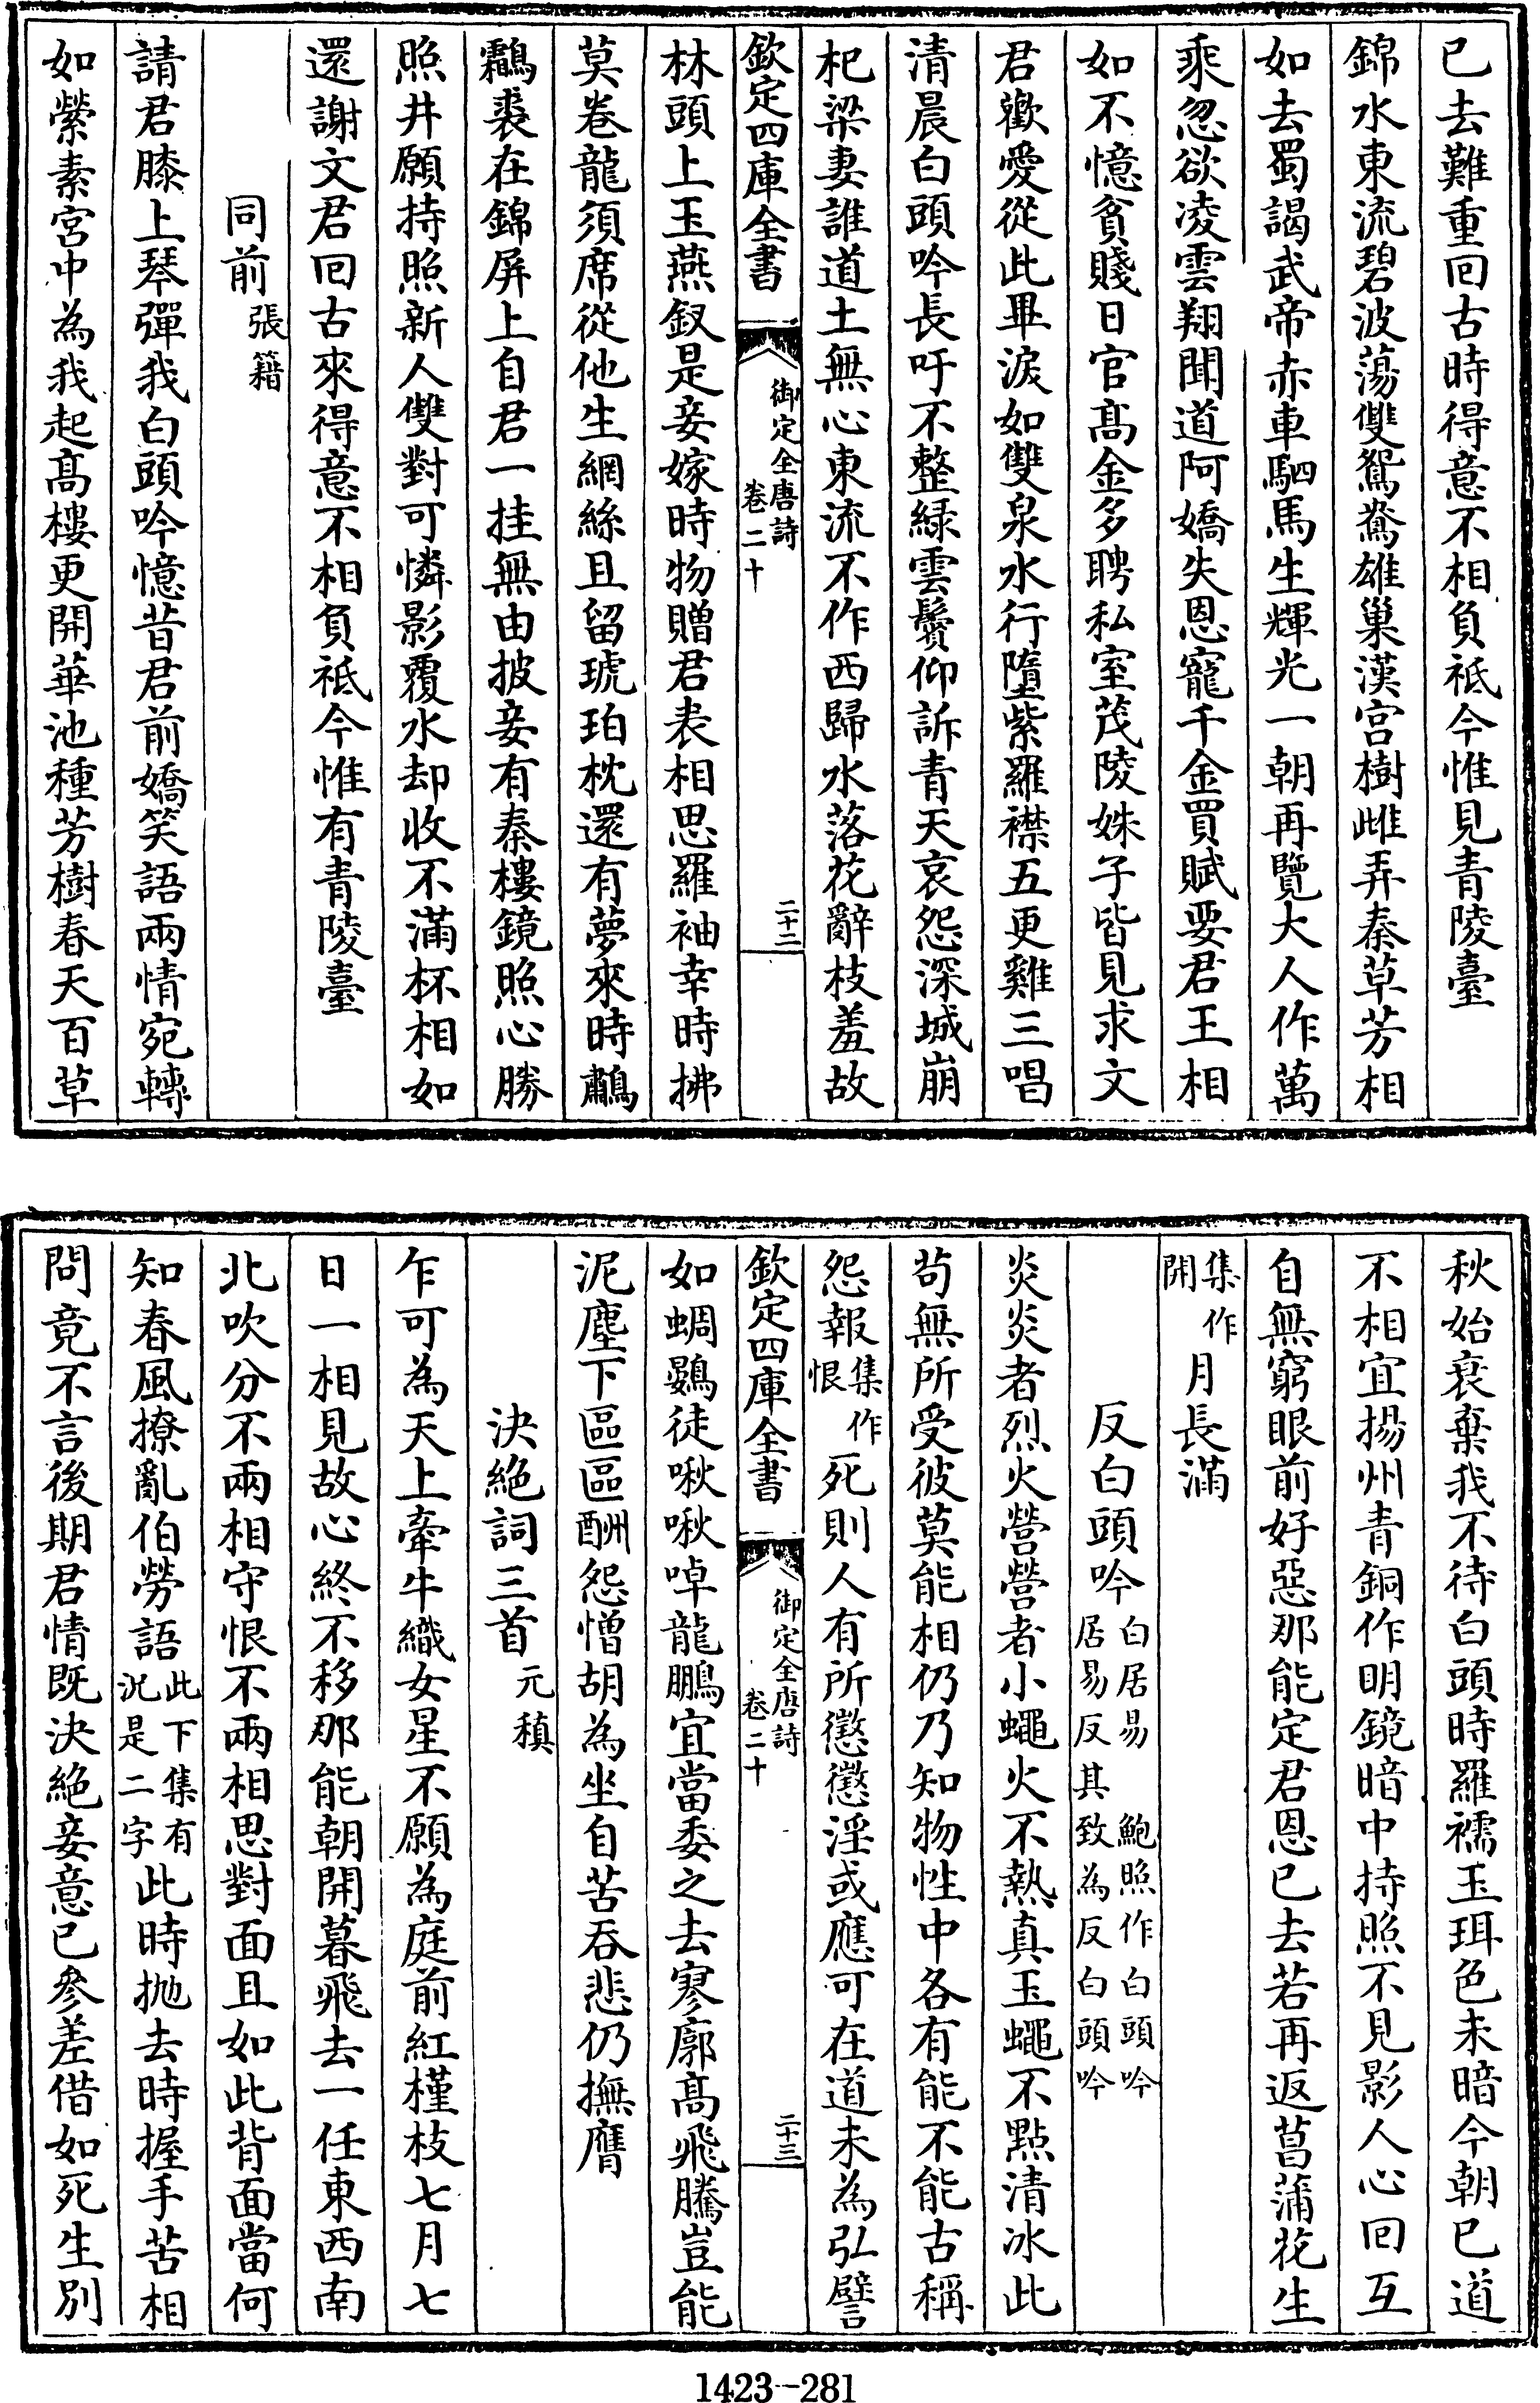 已去難重回古時得意不相負祗今惟見青陵臺
錦水東流碧波蕩雙鴛鴦雄巢漢宫樹雌弄秦草芳相
如去蜀謁武帝赤車駟馬生輝光一朝再覽大人作萬
乘忽欲凌雲翔聞道阿嬌失恩寵千金買賦要君王相
如不憶貧賤日官髙金多聘私室茂陵姝子皆見求文
君歡愛從此畢淚如雙泉水行墮紫羅襟五更雞三唱
清晨白頭吟長吁不整綠雲鬢仰訴青天哀怨深城崩
杞梁妻誰道土無心東流不作西歸水落花辭枝羞故
欽定四庫全書
御定全唐詩
卷二十
二十二
林頭上玉燕釵是妾嫁時物贈君表相思羅袖幸時拂
莫卷龍須席從他生網絲且留琥珀枕還有夢來時鷫
鸘裘在錦屏上自君一挂無由披妾有秦樓鏡照心勝
照井願持照新人雙對可憐影覆水却收不滿杯相如
還謝文君回古來得意不相負祗今惟有青陵臺
同前 張籍
請君膝上琴彈我白頭吟憶昔君前嬌笑語兩情宛轉
如縈素宮中為我起髙樓更開華池種芳樹春天百草
秋始衰棄我不待白頭時羅襦玉珥色未暗今朝已道
不相宜揚州青銅作明鏡暗中持照不見影人心回互
自無窮眼前好惡那能定君恩已去若再返菖蒲花生
集作
開
月長滿
反白頭吟 白居易 鮑照作白頭吟
居易反其致為反白頭吟
炎炎者烈火營營者小蠅火不熱真玉蠅不點清冰此
茍無所受彼莫能相仍乃知物性中各有能不能古稱
怨報集作
恨
死則人有所懲懲淫或應可在道未為弘譬
欽定四庫全書
御定全唐詩
卷二十
二十三
如蜩鷃徒啾啾啅龍鵬宜當委之去寥廓髙飛騰豈能
泥塵下區區酬怨憎胡為坐自苦吞悲仍撫膺
決絶詞三首 元稹
乍可為天上牽牛織女星不願為庭前紅槿枝七月七
日一相見故心終不移那能朝開暮飛去一任東西南
北吹分不兩相守恨不兩相思對面且如此背面當何
知春風撩亂伯勞語此下集有
況是二字
此時抛去時握手苦相
問竟不言後期君情既決絶妾意已參差借如死生别
1423-281